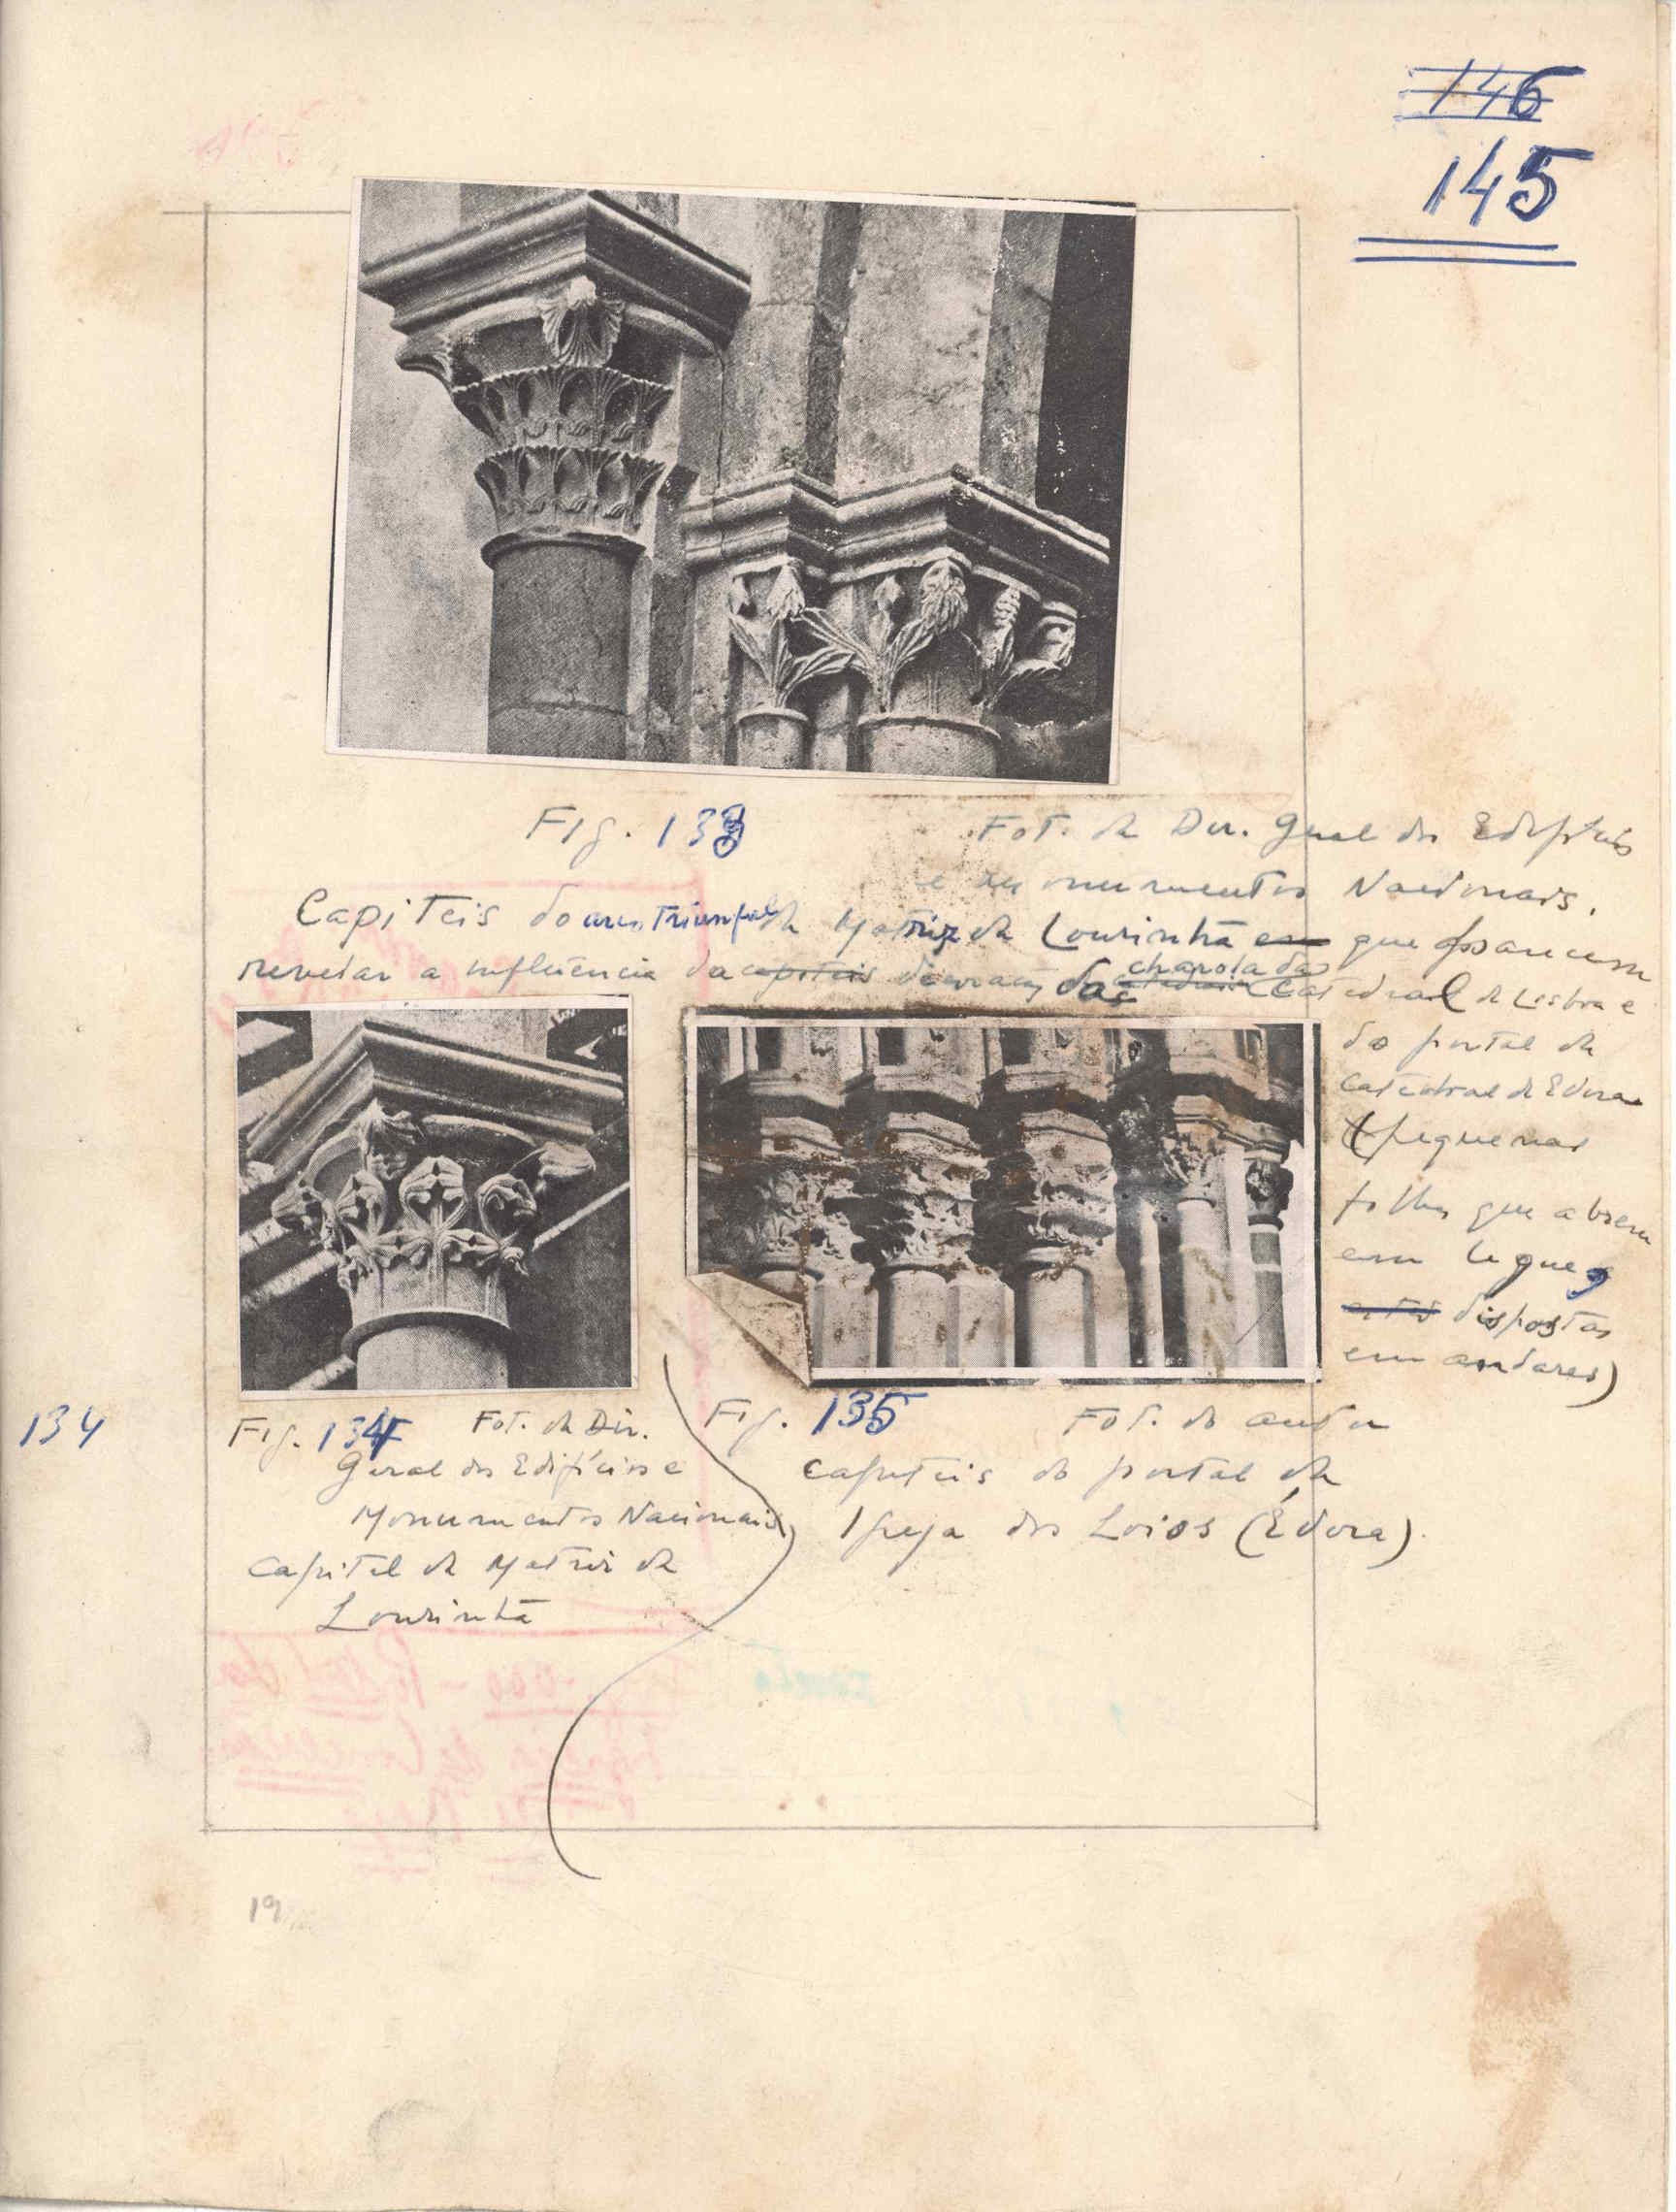 146
145
Fig. 133
Fot. da Dir. Geral dos Edifícios
e monumentos Nacionais.
Capiteis do arco Triunfal da Matriz da Lourinhã em que parecem
revelar a influência da capiteis decoração da charola das Catedral de Lisboa e
do portal da
Catedral de Évora
(pequenas
folhas que abrem
em leque,
dispostas
em andares)
134
Fig. 134 Fot. da Dir.
Geral dos Edifícios e
Monumentos Nacionais
Capitel da Matriz da
Lourinhã
Fig. 135 Fot. do autor
Capiteis do portal da
Igreja dos Loios (Évora).
19